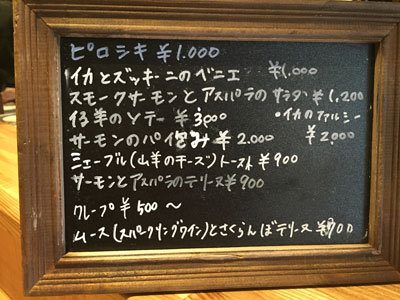 ピロシキ ¥1.000
イカとズッキーニのベニエ ¥1.000
スモークサーモンとアスパラのサラダ ¥1.200
仔羊のソテー ¥3000 •イカのファルシー
サーモンのパイ包み ¥2.000 ¥2000
ミェーブル(山羊のチーズ)トースト ¥900
サーモンとアスパラのテリーヌ ¥900
クレープ ¥500〜
ムース(スパークリングワイン)とさくらんぼテリーヌ ¥700